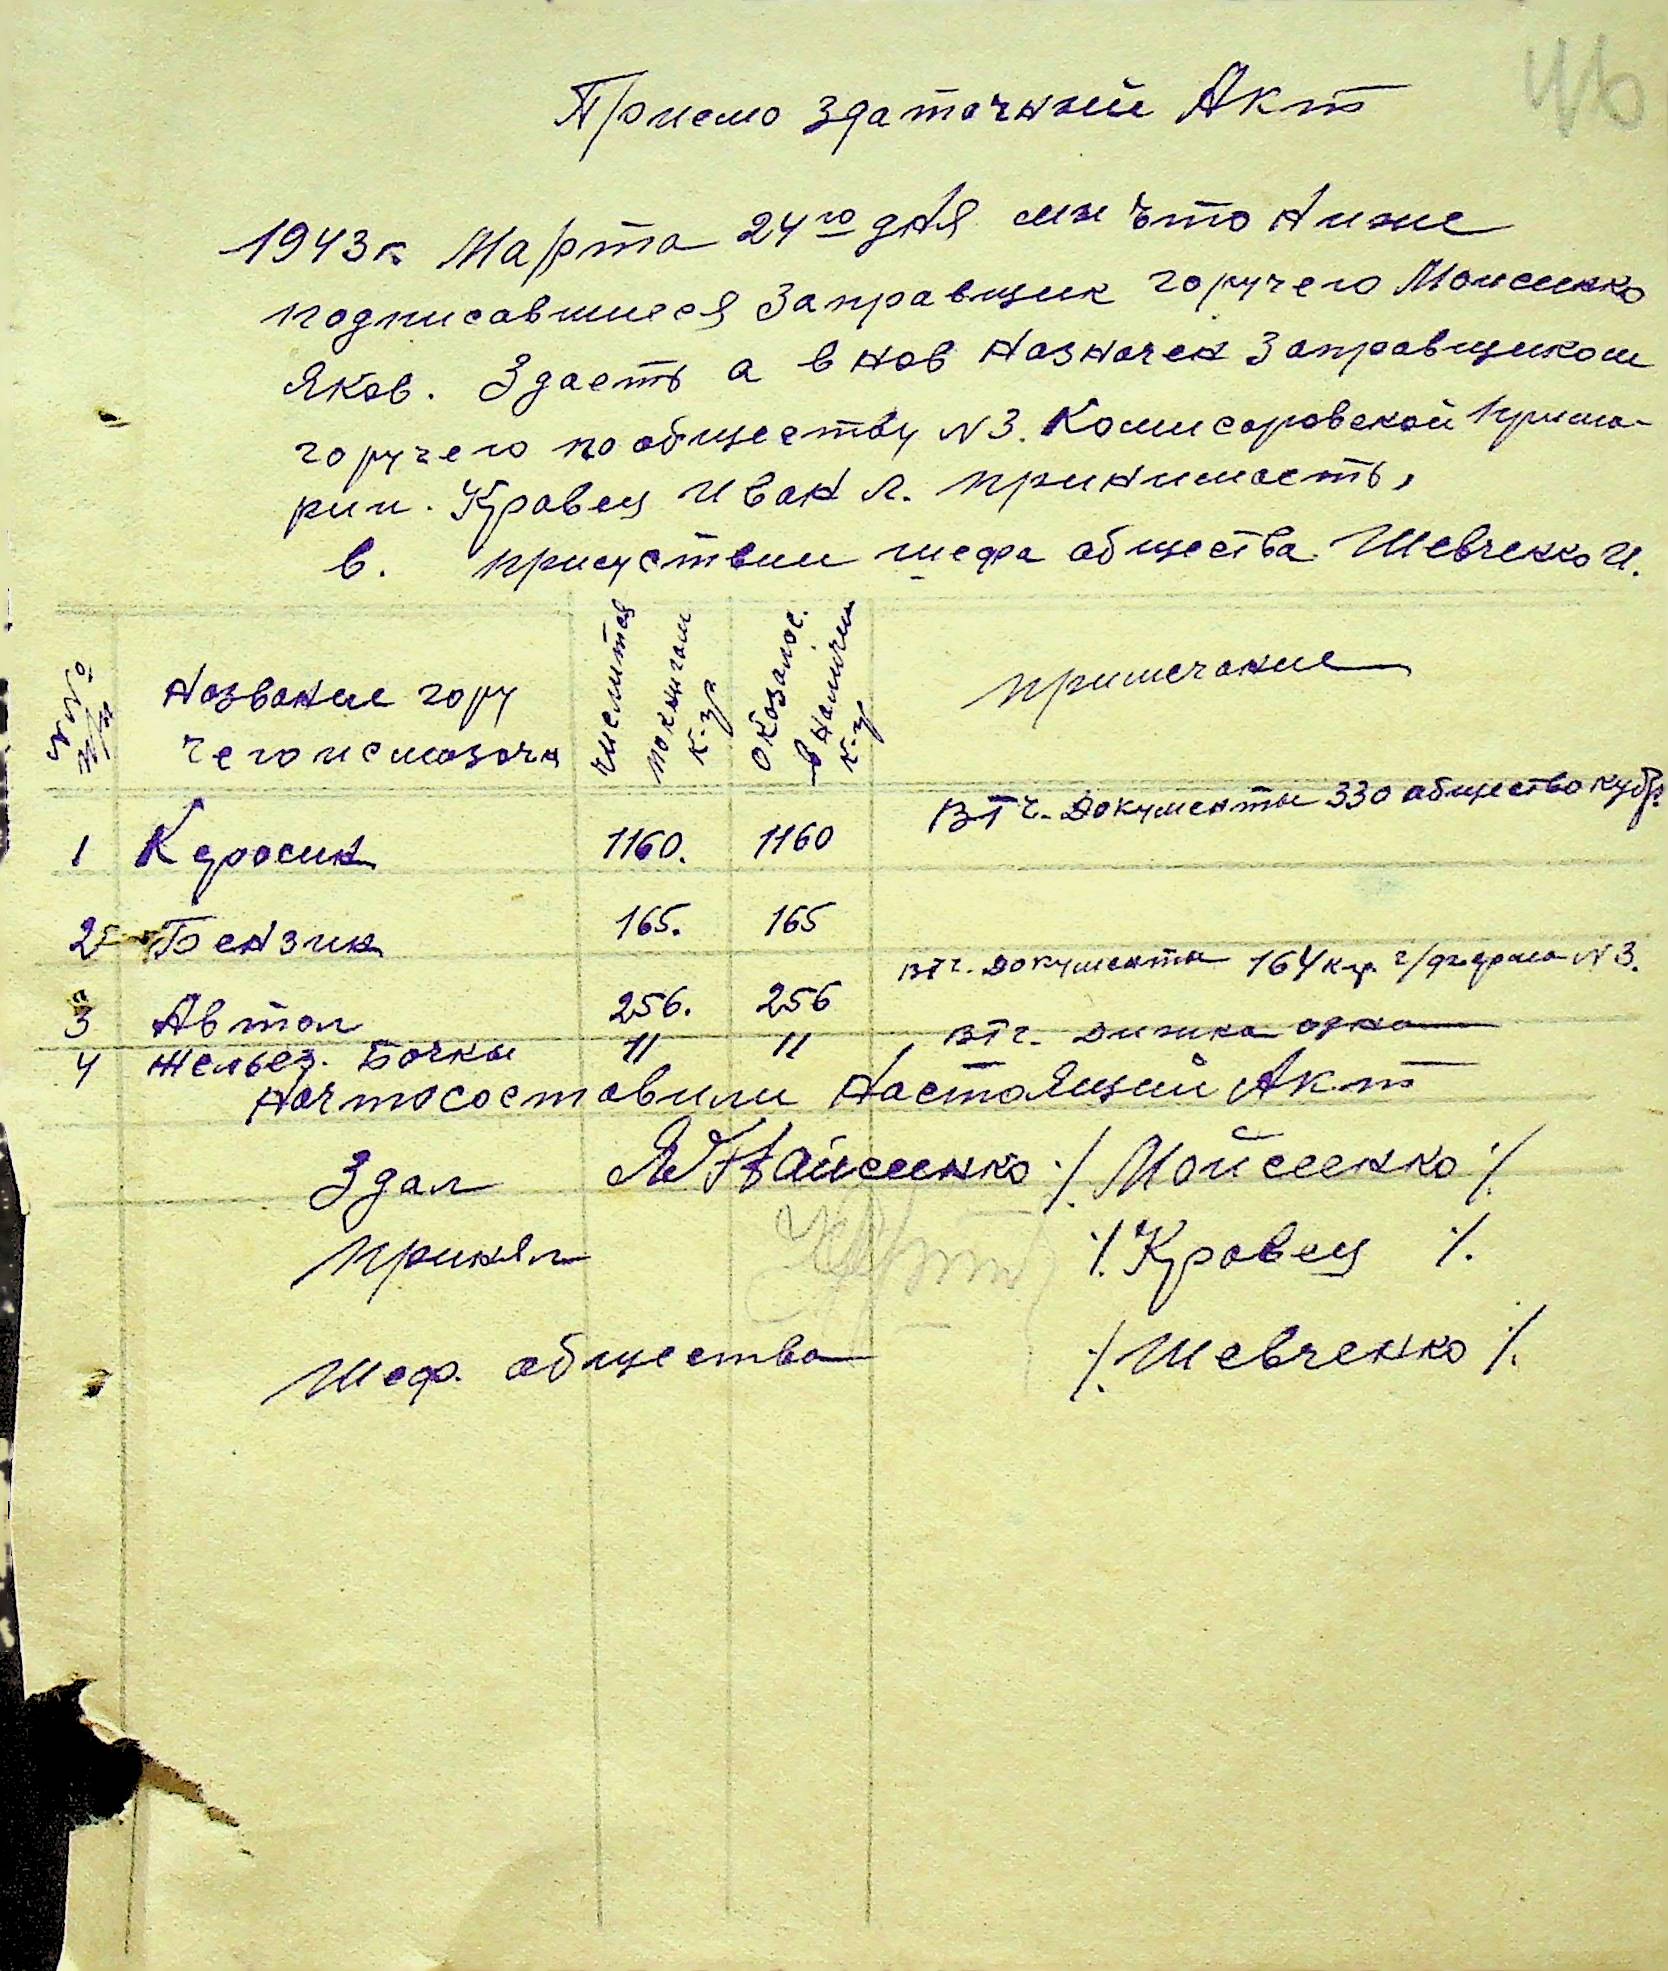 46
Приемо здаточный Акт
1943 г. Марта 24го дня мы что ниже
подписавшиеся Заправщик горучего Моисеенко
Яков. Здаеть а в нов назначен Заправщиком
горучего по обществу N 3. Комисаровской Прима-
рии. Кравец Иван Л. принимаеть,
в. присуствии шефа общества Шевченко И.
№№ п/п | Название горучего и смазочн | числится по книгам к-гр | оказалос. в наличии к-гр | примечание
1 Керосин 1160. 1160 ВТч. Документы 330 общество
2 Бензин 165. 165
3 Автол 256. 256 ВТч. Документы 164 кгр. N 3.
4 Жельез. Бочки 11 11 ВТч. одна
На что составили настоящий Акт
Здал Мойсеенко /. Мойсеенко /.
принял /. Кравец /.
Шеф. общества /. Шевченко /.